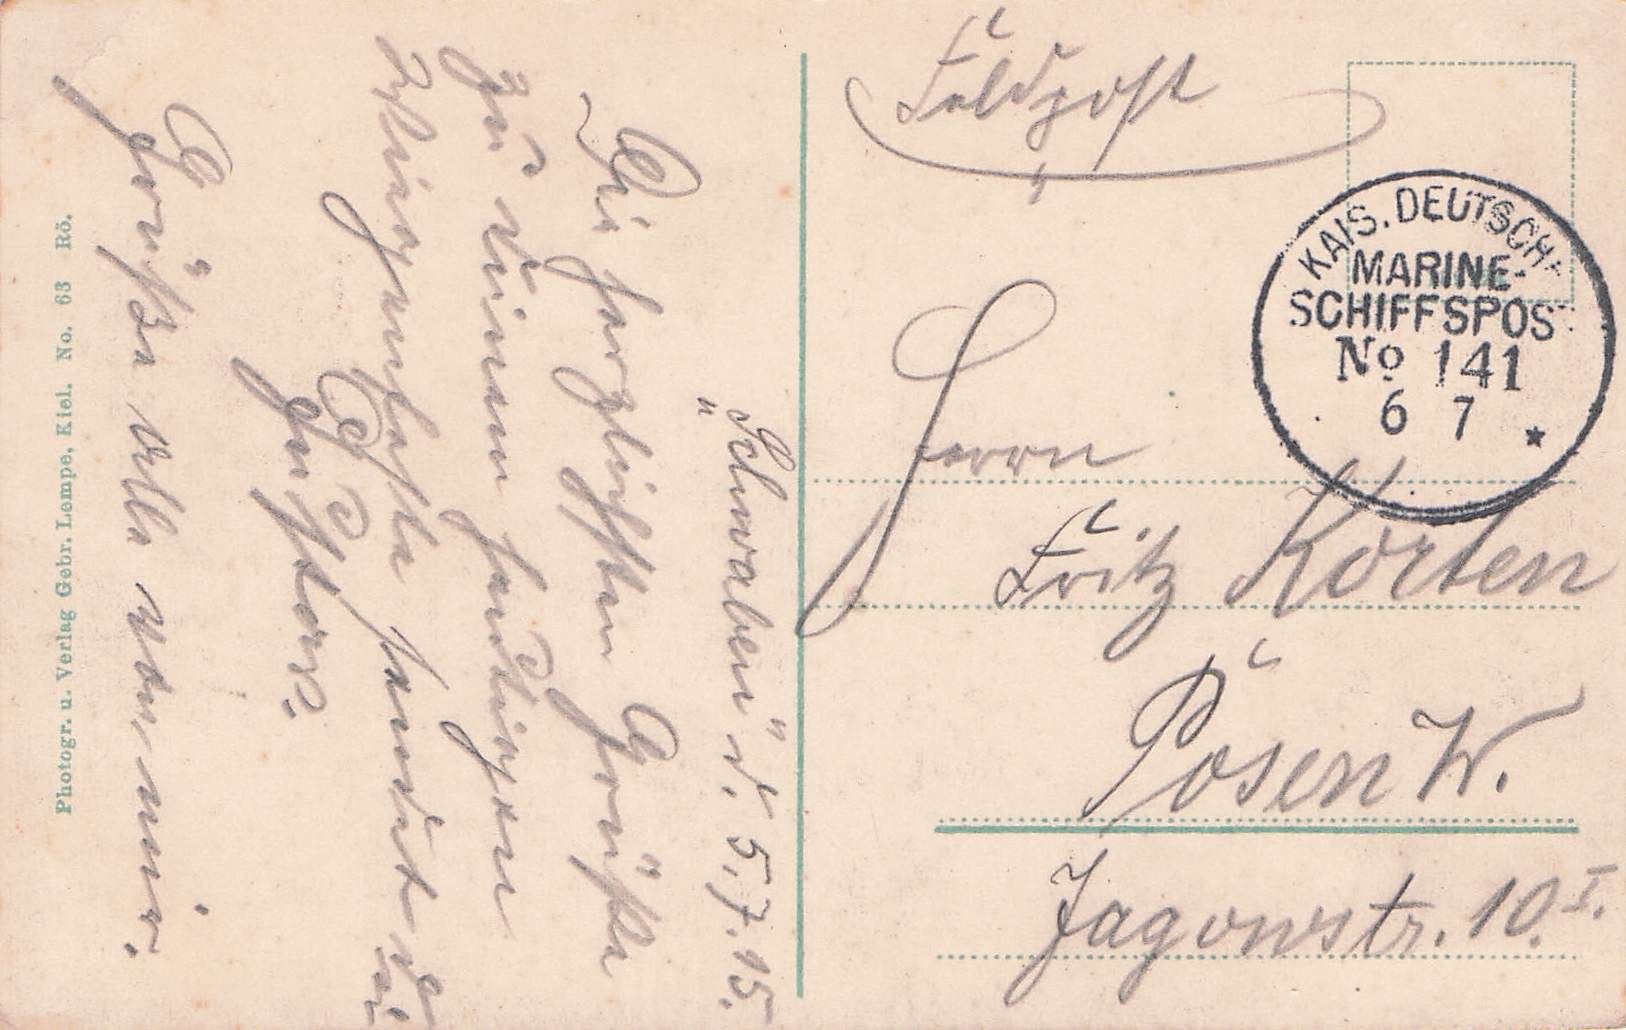 Feldpost
KAIS. DEUTSCHE
MARINE-
SCHIFFSPOST
No 141
6 7 *
Herrn
Fritz Korten
Posen W.
Jagowstr. 10.I.
"Schwaben" d. 5.7.15.
Die herzlichsten Grüße
zu deinem heutigen
Wiegenfeste sendet dir
Grüße alle von mir.
Photogr. u. Verlag Gebr. Lempe, Kiel. No. 63 Rö.